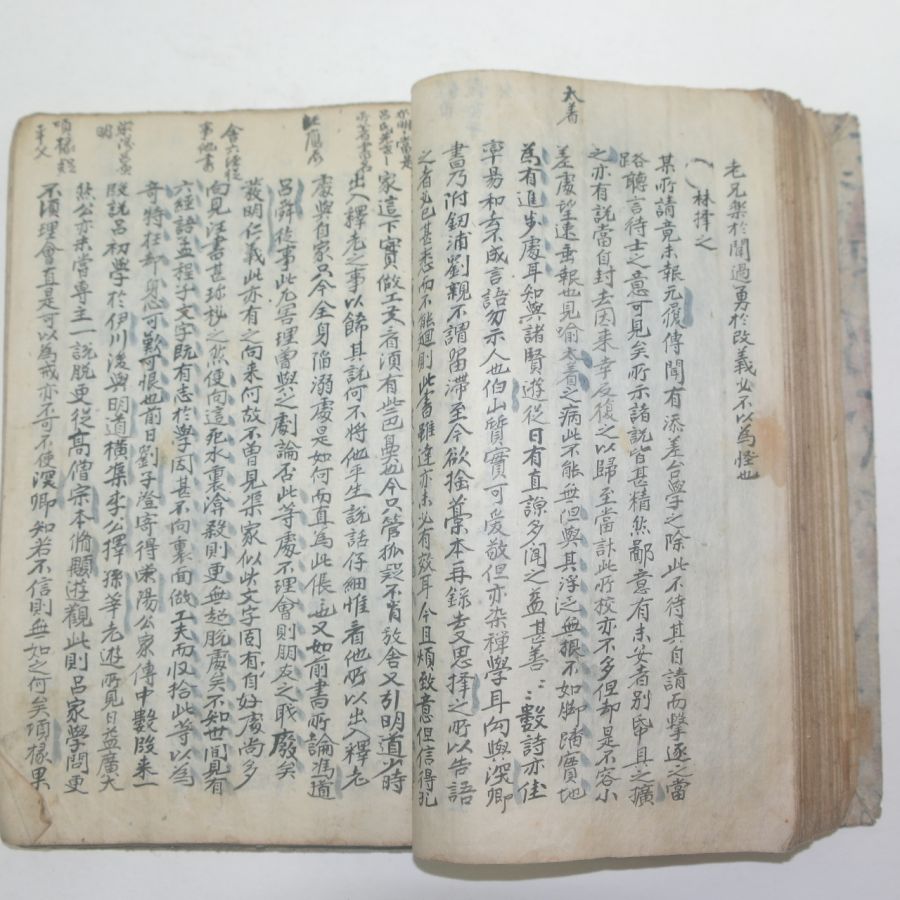 老兄樂於聞過勇於改義必不以為怪也
林擇之
某所請竟未報元履傳聞有添差台學之除此不待其自請而擊逐之當
路聽言待士之意可見矣所示諸說皆甚精然鄙意有未安者別昏具之擴
之亦有說當自封去因来幸反復之以歸至當計此所挍亦不多但却是不容小
差處望速垂報也見喻太着之病此不能無但與其浮泛無根不如脚踏實地
為有進步處耳知與諸賢遊從日有直諒多聞之益甚善數詩亦佳
率易和去不成言語勿示人也伯山質實可愛敬但亦染禪學耳向與深卿
書乃附釼浦劉親不謂留滯至今欲捨藁本再録去又思擇之所以告語
之者必已甚悉而不能廻則此書雖達亦未必有效耳今且煩致意但信得孔
家這下實做工夫看須有些巴鼻也今只管孤疑不肯放舍又引明道少時
出入釋老之事以餙其說何不將他平生說話仔細惟看他所以出入釋老
處與自家只今全身陷溺處是如何而直為此倀也又如前書所論馮道
呂舜徒事此尤害理曾與之劇論否此等處不理會則朋友之職廢矣
發明仁義此亦有之向来何故不曾見渠家似此文字固有自好處尚多
向見汪書甚珍秘之然便向這死水裏渰殺則更無超脫處矣不知世間有
六經語孟程子文字既有志於學因甚不向裏面做工夫而収拾此等以為
奇特狂却身心可歎可恨也前日劉子澄寄得滎陽公家傳中數段来一
段說呂初學於伊川後與明道橫渠李公擇孫莘老遊所見日益廣大
然公亦未嘗專主一說脫更從高僧宗本脩顒遊觀此則呂家學問更
不須理會直是可以為戒亦不可不使深卿知若不信則無如之何矣項櫞果
太着
舍六經從
事他書
滎陽公
明